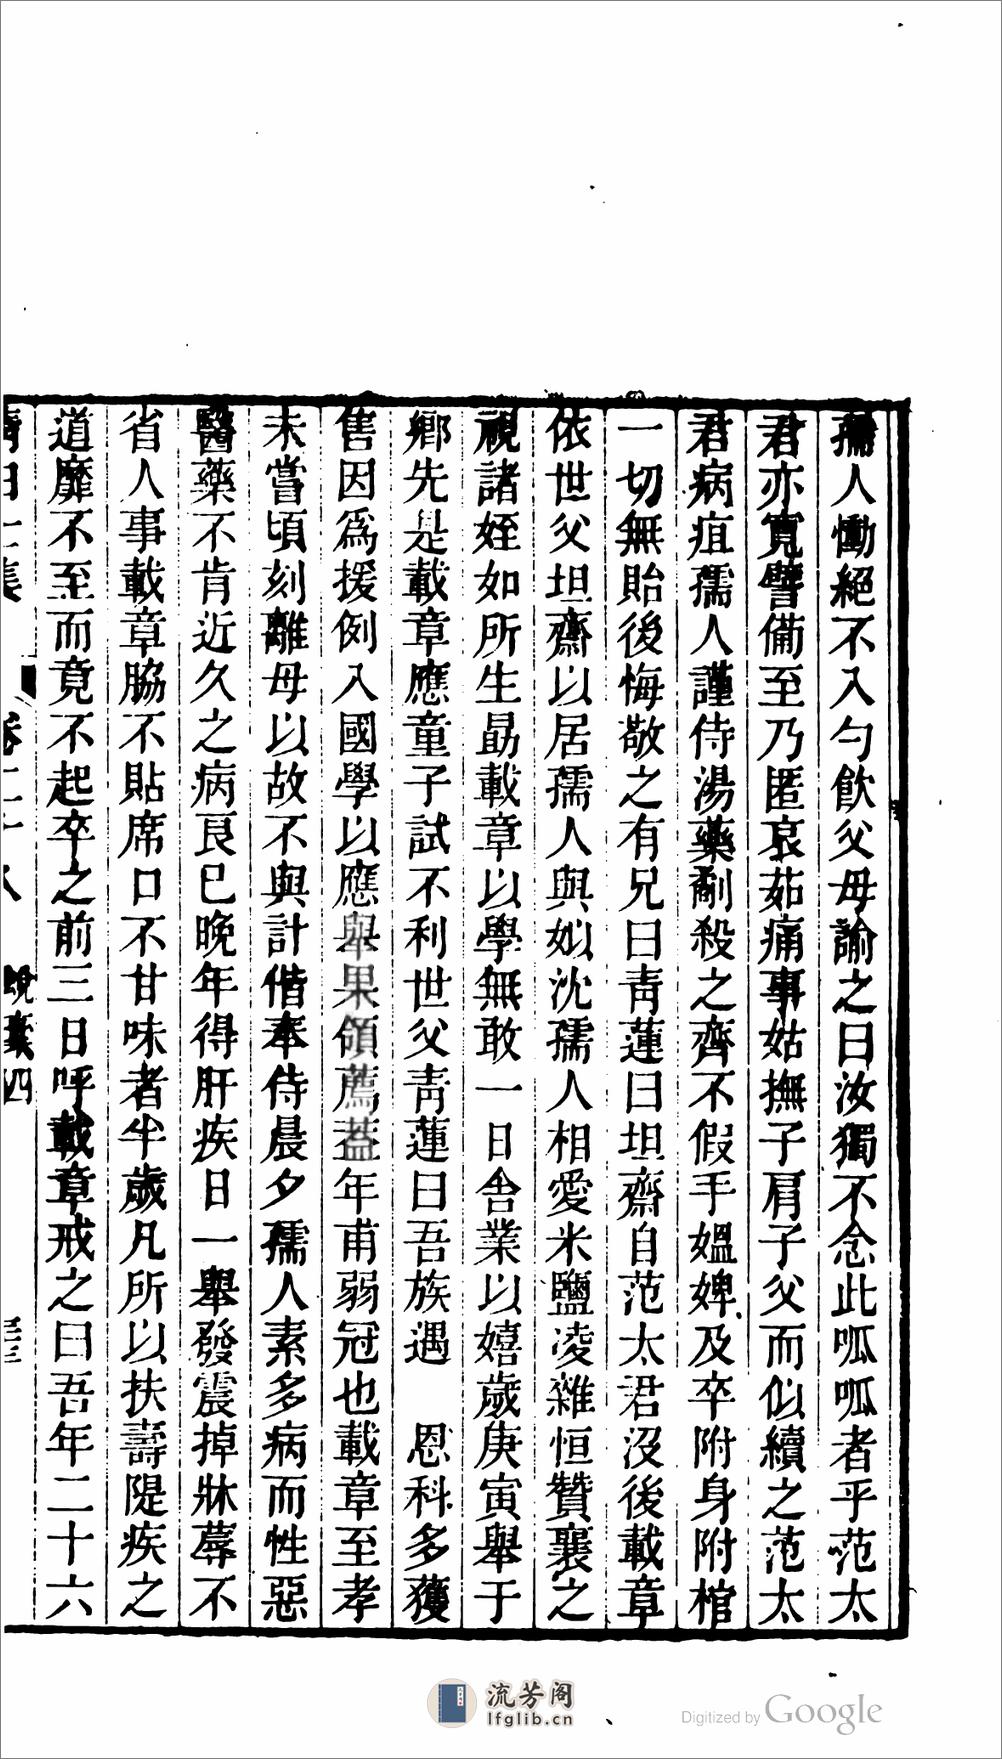 孺人慟絕不入勺飲父母諭之曰汝獨不念此呱呱者乎范太
君亦寬譬備至乃匿哀茹痛事姑撫子肩子父而似續之范太
君病疽孺人謹侍湯藥劀殺之齊不假手媼婢及卒附身附棺
一切無貽後悔敬之有兄曰靑蓮曰坦齋自范太君沒後載章
依世父坦齋以居孺人與姒沈孺人相愛米鹽凌雜恒贊襄之
視諸姪如所生勗載章以學無敢一日舍業以嬉歲庚寅舉于
鄉先是載章應童子試不利世父靑蓮曰吾族遇 恩科多獲
售因爲援例入國學以應舉果領薦葢年甫弱冠也載章至孝
未嘗頃刻離母以故不與計偕奉侍晨夕孺人素多病而性惡
醫藥不肯近久之病艮已晚年得肝疾日一舉發震掉牀蓐不
省人事載章脇不貼席口不甘味者半歲凡所以扶壽隄疾之
道靡不至而竟不起卒之前三日呼載章戒之曰吾年二十六
集
卷二十八
晚藁四
流芳阁
lfglib.cn
Digitized by Google